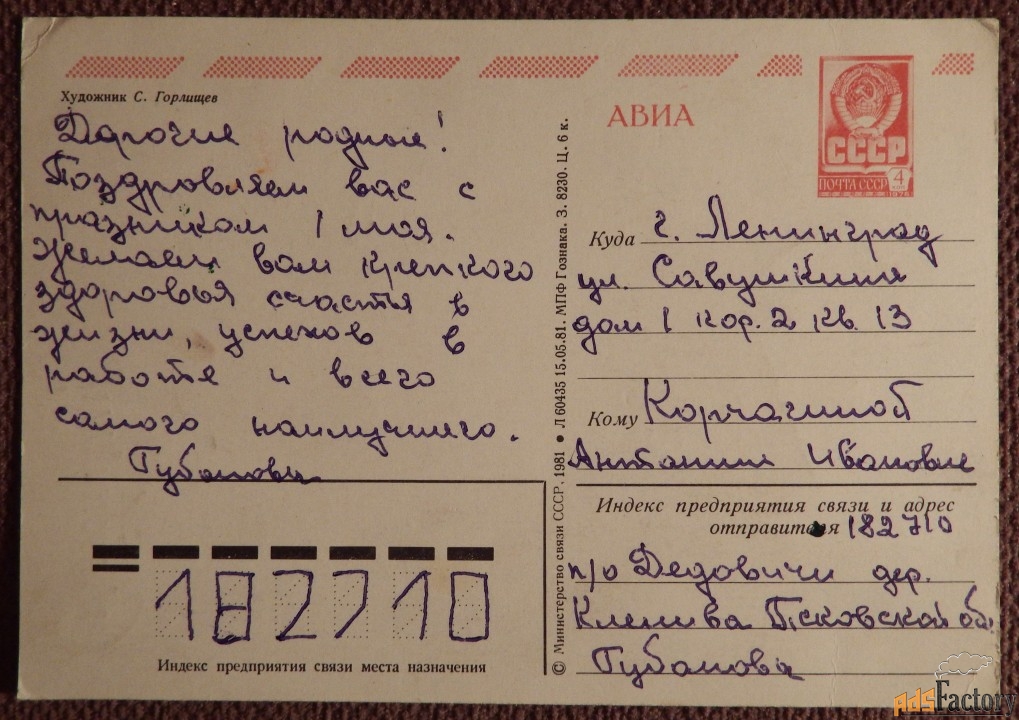 Художник С. Горлищев
Дорогие родные!
Поздровляем вас с
празником 1 мая.
желаем вам крепкого
здоровья счастья в
жизни, успехов в
работе и всего
самого наилучшего.
Губанова
АВИА
СССР
ПОЧТА СССР 4
1978
Куда г. Ленинград
ул. Савушкина
дом 1 кор. 2 кв. 13
Кому Корчагиной
Антанине Ивановне
Индекс предприятия связи и адрес
отправителя 182710
п/о Дедовичи дер.
Псковской об.
Губанова
182710
Индекс предприятия связи места назначения
© Министерство связи СССР. 1981 ● Л 60435 15.05.81. МПФ Гознака. З. 8230. Ц. 6 к.
AdsFactory